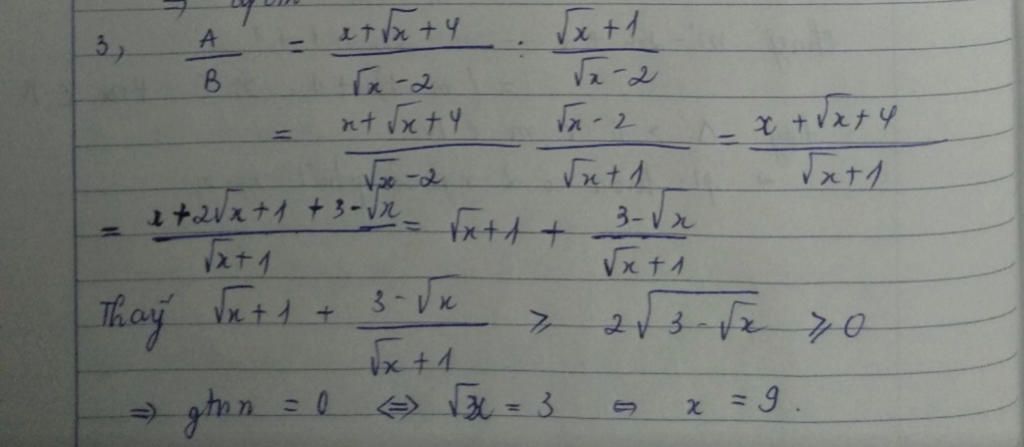 3, A/B = (x+√x+4)/(√x-2) : (√x+1)/(√x-2)
= (x+√x+4)/(√x-2) (√x-2)/(√x+1) = (x+√x+4)/(√x+1)
= (x+2√x+1+3-√x)/(√x+1) = √x+1 + (3-√x)/(√x+1)
Thấy √x+1 + (3-√x)/(√x+1) ≥ 2√(3-√x) ≥ 0
⇒ gtnn = 0 ⇔ √x = 3 ⇔ x = 9.